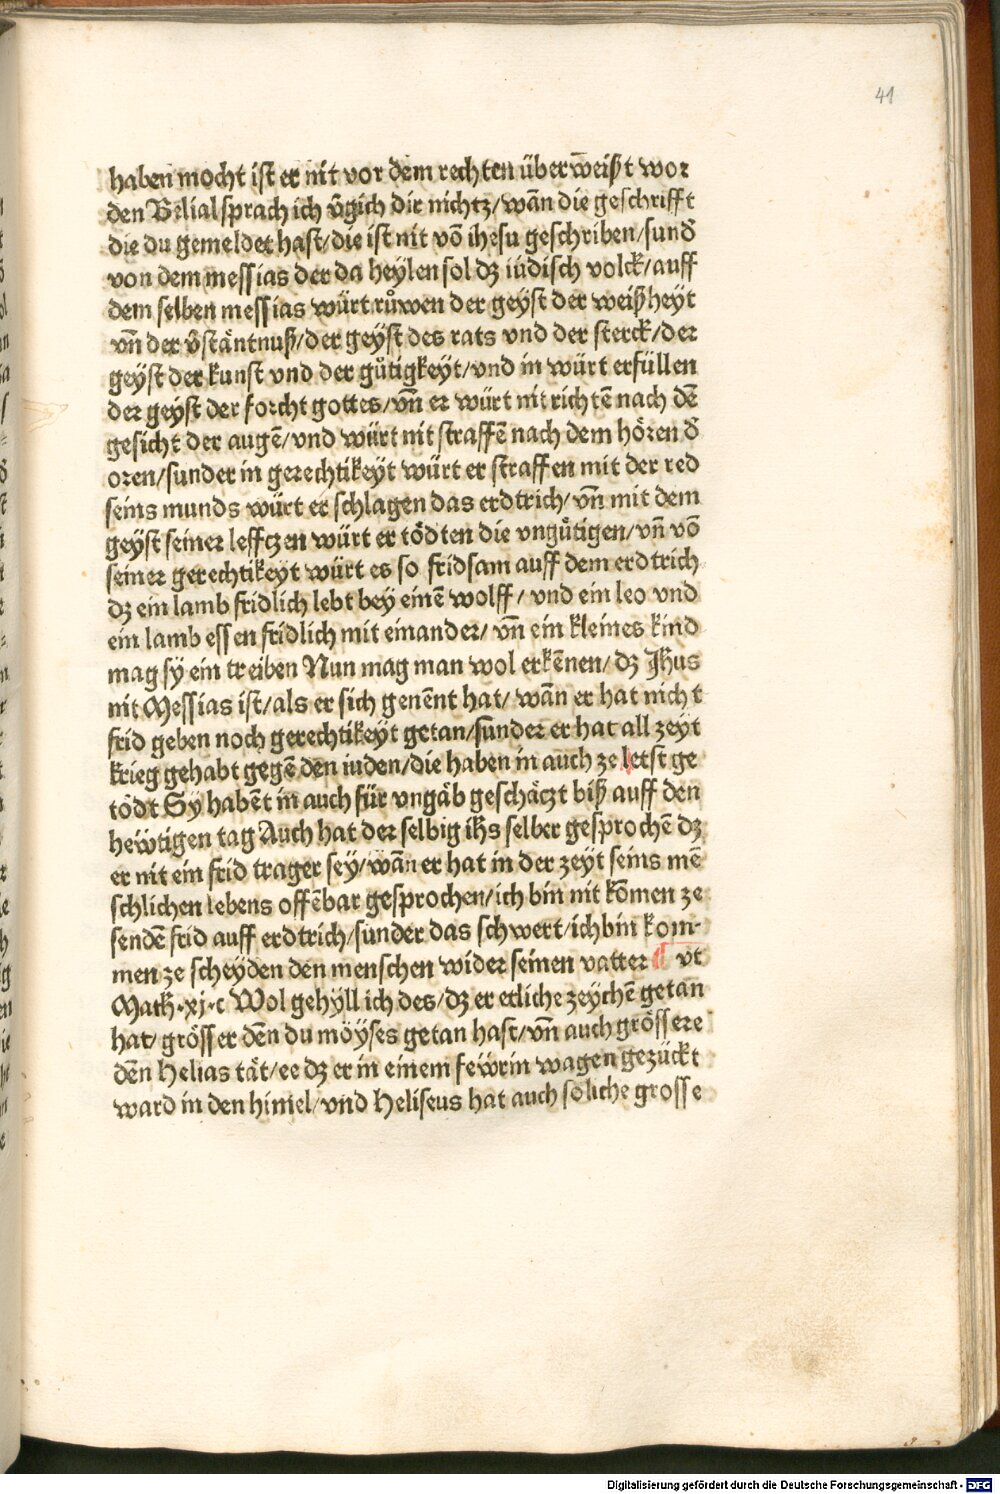 41
haben mocht ist er nit vor dem rechten überweißt wor
den Belial sprach ich v̂gich dir nichtz/wān die geschrifft
die du gemeldet hast/die ist nit vō ihesu geschriben/sund̄
von dem messias der da heylen sol dz iüdisch volck/auff
dem selben messias würt růwen der geÿst der weißheÿt
vn̄ der v̂stäntnuß/der geÿst des rats vnd der sterck/der
geÿst der kunst vnd der gütigkeÿt/vnd in würt erfüllen
der geÿst der forcht gottes/vn̄ er würt nit richtē nach dē
gesicht der augē/vnd würt nit straffē nach dem hören d̄
oren/sunder in gerechtikeÿt würt er straffen mit der red
seins munds würt er schlagen das erdtrich/vn̄ mit dem
geÿst seiner lefftzen würt er tödten die vngütigen/vn̄ vō
seiner gerechtikeÿt würt es so fridsam auff dem erdtrich
dz ein lamb fridlich lebt beÿ einē wolff/vnd ein leo vnd
ein lamb essen fridlich mit einander/vn̄ ein kleines kind
mag sÿ ein treiben Nun mag man wol erkēnen/dz Jhus
nit Messias ist/als er sich genēnt hat/wān er hat nicht
frid geben noch gerechtikeÿt getan/sunder er hat all zeÿt
krieg gehabt gegē den iuden/die haben in auch ze letst ge
tödt Sÿ habēt in auch für vngäb geschätzt biß auff den
hewtigen tag Auch hat der selbig ihs selber gesprochē dz
er nit ein frid trager seÿ/wān er hat in der zeÿt seins mē
schlichen lebens offēbar gesprochen/ich bin nit kōmen ze
sendē frid auff erdtrich/sunder das schwert/ich bin kom-
men ze scheÿden den menschen wider seinen vatter ¶ vt
Math·xj·c Wol gehyll ich des/dz er etliche zeÿchē getan
hat/grösser dēn du möÿses getan hast/vn̄ auch grössere
dēn Helias tät/ee dz er in einem fewrin wagen gezückt
ward in den himel/vnd Heliseus hat auch soliche grosse
Digitalisierung gefördert durch die Deutsche Forschungsgemeinschaft - DFG